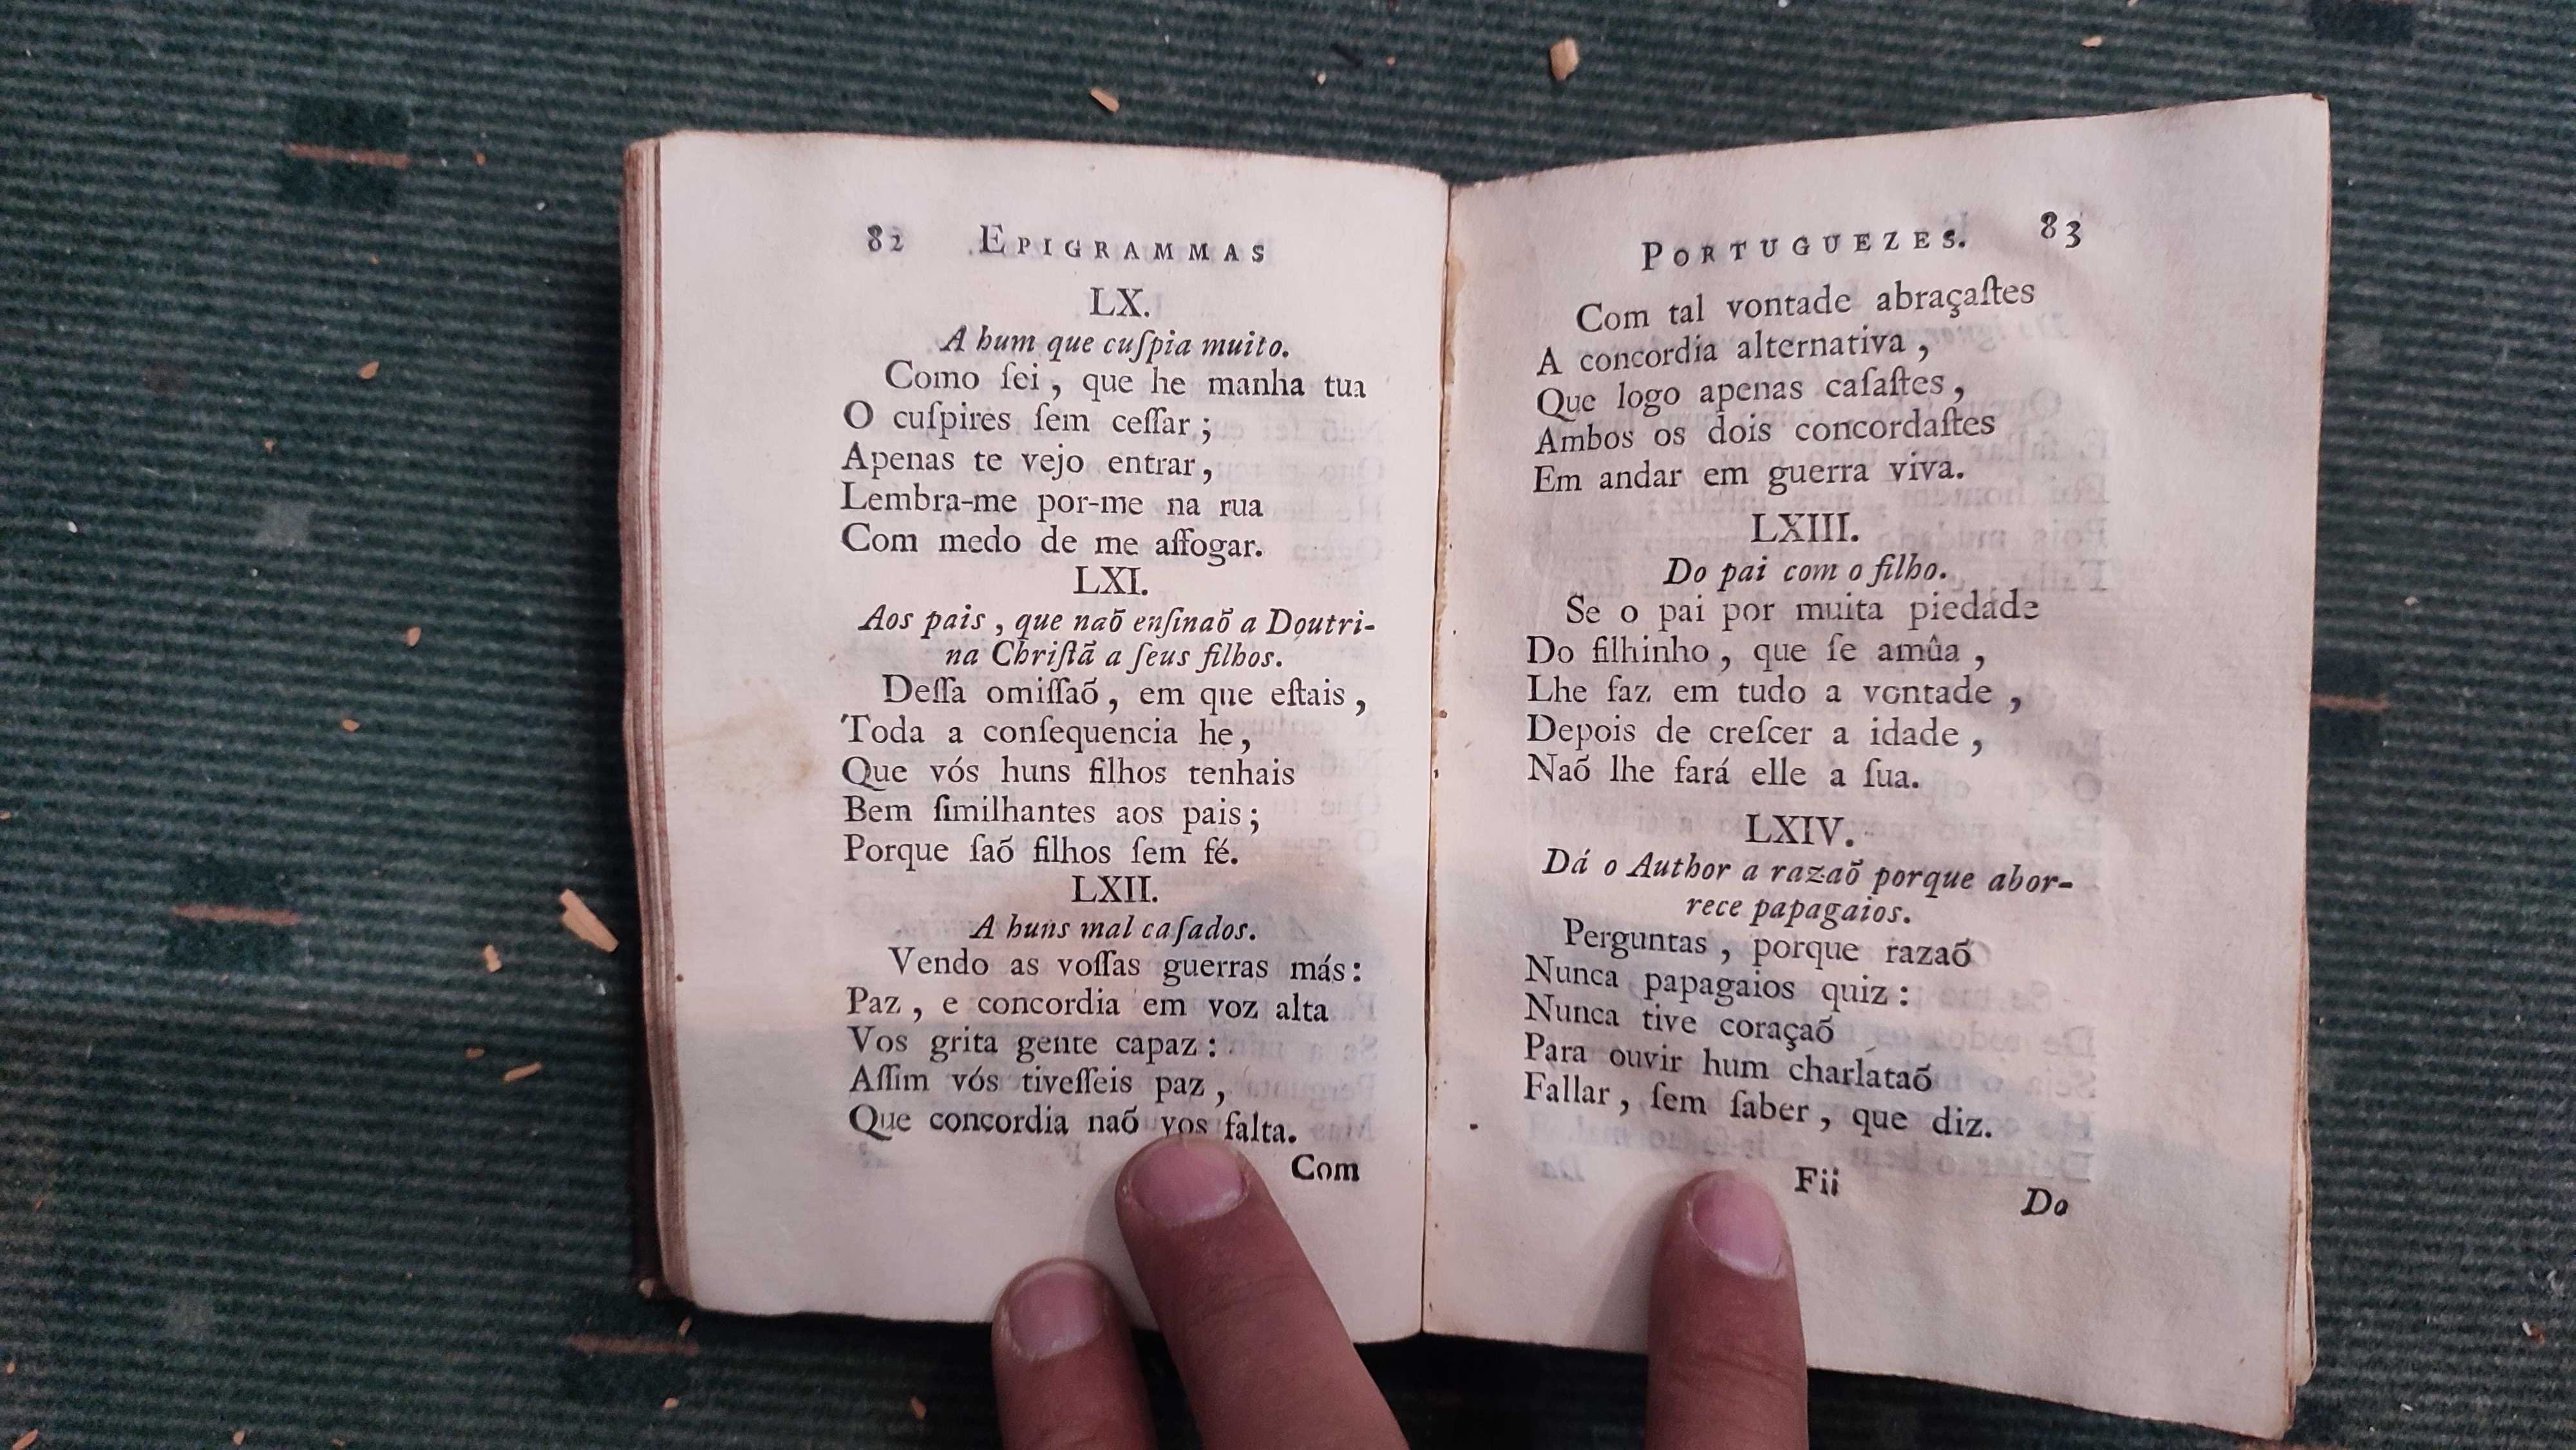 82 EPIGRAMMAS
LX.
A hum que cuſpia muito.
Como ſei, que he manha tua
O cuſpires ſem ceſſar;
Apenas te vejo entrar,
Lembra-me por-me na rua
Com medo de me affogar.
LXI.
Aos pais, que naõ enſinaõ a Doutri-
na Chriſtã a ſeus filhos.
Deſſa omiſſaõ, em que eſtais,
Toda a conſequencia he,
Que vós huns filhos tenhais
Bem ſimilhantes aos pais;
Porque ſaõ filhos ſem fé.
LXII.
A huns mal caſados.
Vendo as voſſas guerras más:
Paz, e concordia em voz alta
Vos grita gente capaz:
Aſſim vós tiveſſeis paz,
Que concordia naõ vos falta.
Com
PORTUGUEZES. 83
Com tal vontade abraçaſtes
A concordia alternativa,
Que logo apenas caſaſtes,
Ambos os dois concordaſtes
Em andar em guerra viva.
LXIII.
Do pai com o filho.
Se o pai por muita piedade
Do filhinho, que ſe amûa,
Lhe faz em tudo a vontade,
Depois de creſcer a idade,
Naõ lhe fará elle a ſua.
LXIV.
Dá o Author a razaõ porque abor-
rece papagaios.
Perguntas, porque razaõ
Nunca papagaios quiz:
Nunca tive coraçaõ
Para ouvir hum charlataõ
Fallar, ſem ſaber, que diz.
Fii
Do